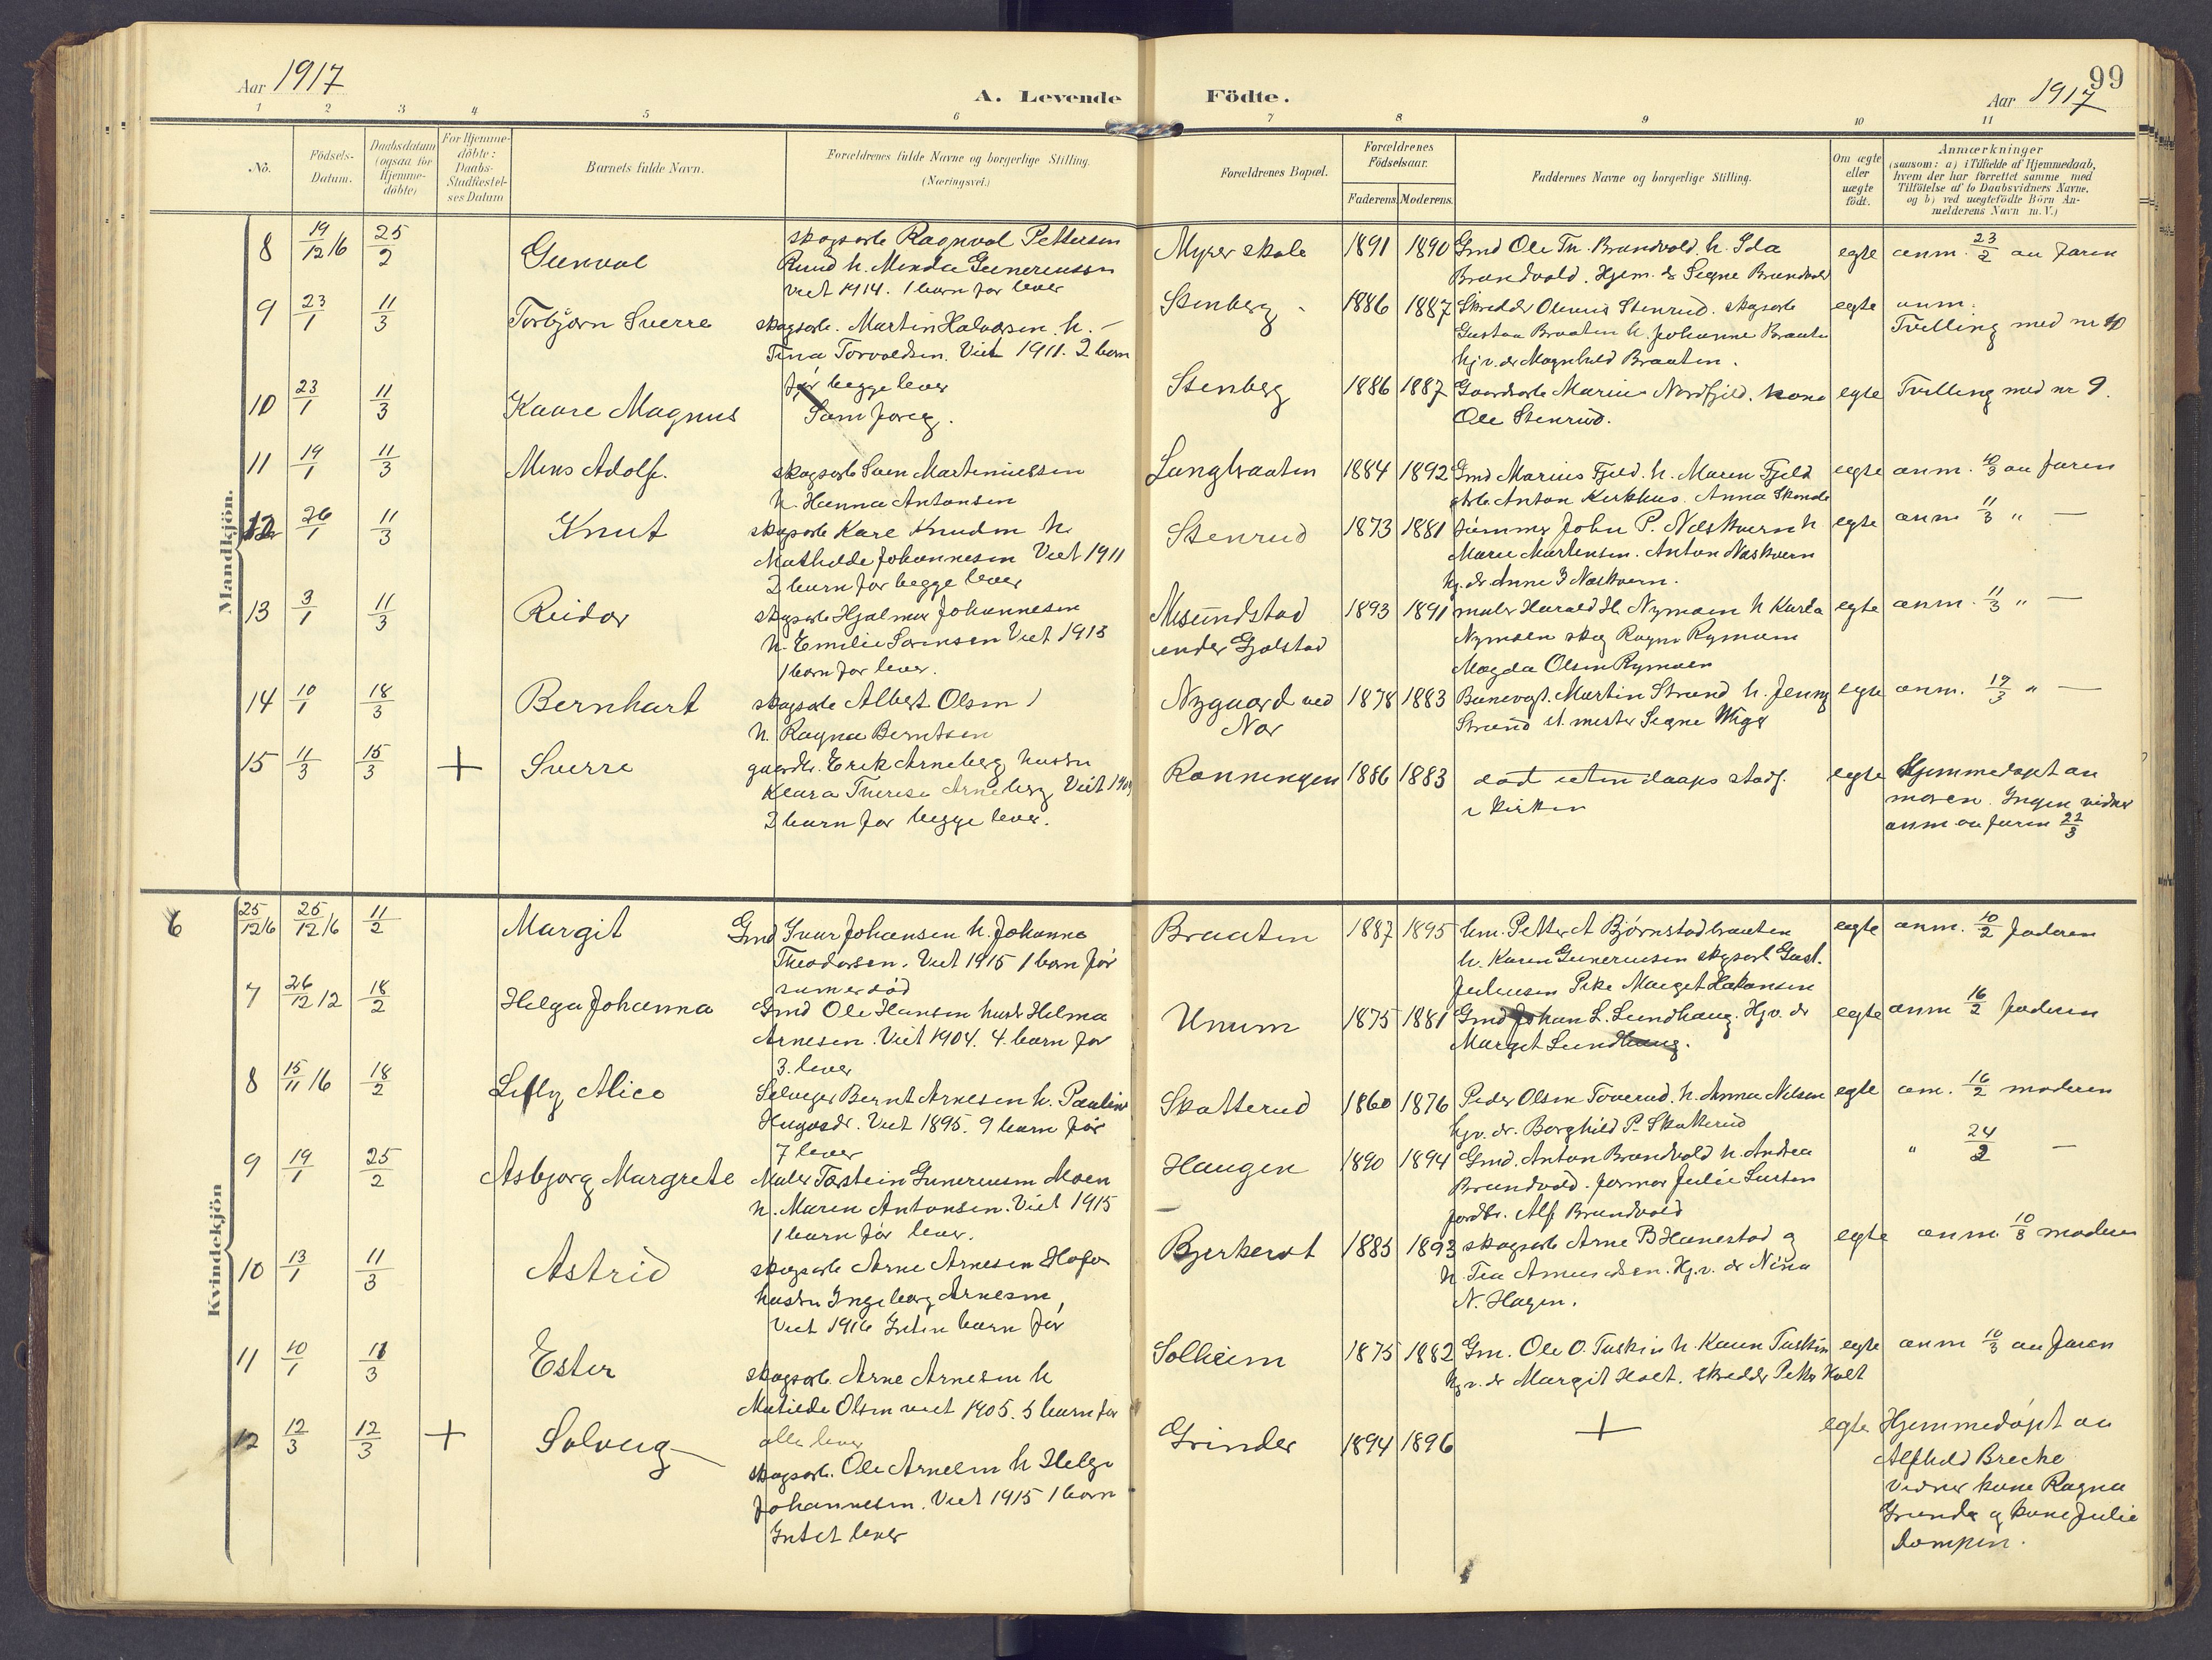 Aar 1917
A. Levende Födte.
Aar 1917
99
1 2 3 4 5 6 7 8 9 10 11
No.
Födsels-Datum.
Daabsdatum (ogsaa for Hjemme-döbte)
For Hjemme-döbte: Daabs-Stadfæstel-ses Datum
Barnets fulde Navn.
Forældrenes fulde Navne og borgerlige Stilling.
(Næringsvei.)
Forældrenes Bopæl.
Forældrenes Födselsaar.
Faderens. Moderens.
Faddernes Navne og borgerlige Stilling.
Om ægte eller uægte födt.
Anmærkninger
(saasom: a) i Tilfælde af Hjemmedaab,
hvem der har forrettet samme med
Tilföielse af to Daabsvidners Navne,
og b) ved uægtefödte Börn An-
melderens Navn m. V.)
Mandkjön.
8 19/12 16 25/2 Gunval
skogsarb Ragnval Pettersen
Ruud h. Minda Guneriussen
viet 1914. 1 barn før lever
Myrer skole 1891 1890
Gmd Ole Th. Brandvold. h. Ida
Brandvold. Hjem. d. Signe Brandvold
egte anm. 23/2 av faren
9 23/1 11/3 Torbjørn Sverre
skogsarb. Martin Halvorsen. h. -
Tina Torvaldsen. Viet 1911. 2 barn
før begge lever
Stenberg 1886 1887
Skredder Olenus Stenrud. skogsarb
Gustav Braaten h. Johanne Braaten
hjv. dr Magnhild Braaten.
egte anm.
Tvilling med nr 10
10 23/1 11/3 Kaare Magnus
Som foreg.
Stenberg 1886 1887
Gaardarb Marius Nordfjeld. kone
Ole Stenrud.
egte Tvilling med nr 9.
11 19/1 11/3 Mens Adolf.
skogsarb Sven Martiniussen
h. Hanna Antonsen
Langbraaten 1884 1892
Gmd Marius Fjeld. h. Maren Fjeld
Anton Kirkhus. Anna
egte anm. 10/3 av faren
12 26/1 11/3 Knut
skogsarb Kare Knudsen h.
Mathilde Johannesen Viet 1911
2 barn før begge lever
Stenrud 1873 1881
tømmer John P. Næskvern h
Marie Martinsen. Anton Næskvern
hj. dr Anne Næskvern.
egte anm 11/3 " —
13 3/1 11/3 Reidar
skogsarb Hjalmar Johannesen
h. Emilie Sørensen Viet 1913
1 barn før lever.
under Gjølstad 1893 1891
maler Harald H. Nymoen h Karla
Nymoen skog Ragna Rymoen
Magda Olsen Rymoen
egte anm. 11/3 " —
14 10/1 18/3 Bernhart
skogsarb Albert Olsen
h. Ragna Berntsen
Nygaard ved
Nor 1878 1883
Banevogt. Martin Strand h. Jenny
Strand st. mester Signe
egte anm. 17/3 " —
15 11/3 15/3 + Sverre
gaardbr. Erik Arneberg hustru
Klara Therese Arneberg Viet 1909
2 barn før begge lever.
Rønningen 1886 1883
død uten daaps stadf.
i kirken
egte Hjemmedøpt av
moren. Ingen vidner
anm av faren 22/3
Kvindekjön
6 25/12 16 25/12 16 11/2 Margit
Gmd Ivar Johansen h. Johanna
Theodorsen. Viet 1915 1 barn før
som er død
Braaten 1887 1895
hm. Petter A Bjørnstadbraaten
h. Karen Gunerusen skogsarb Gust.
Juliusen Pike Margit Hakansen
egte anm. 10/2 faderen
7 26/12 12 18/2 Helga Johanna
Gmd Ole Hansen hustr Helma
Arnesen. Viet 1904. 4. barn før
3. lever
Unum 1875 1881
Gmd Johan L. Lundhaug. Hjv. dr
Margit Lundhaug.
egte anm 16/2 faderen
8 15/11 16 18/2 Lilly Alice
Selveier Bernt Arnesen h. Pauline
Hugosdr. Viet 1895. 9 barn før
7 lever
Skatterud 1860 1876
Peder Olsen Toverud. h. Anna Nilsen
hjv. dr. Borghild P. Skatterud
egte am. 16/2 moderen
9 19/1 25/2 Asbjørg Margrete
Maler Torstein Guneriusen Moen
h. Maren Antonsen. Viet 1915
1 barn før lever.
Haugen 1890 1894
Gmd. Anton Brandvold h. Andrea
Brandvold. farmor Julie
Alf Brandvold
" 24/2 —
10 13/1 11/3 Astrid
skogsarb Arne Arnesen Hofa
hustru Ingeborg Arnesen,
Viet 1916 Inten barn før
1885 1893
skogsarb Arne B Hanestad og
h. Tea Amundsen. Hj.v. dr Nina
N. Hagen.
egte anm. 10/3 moderen
11 10/1 11/3 Ester
skogsarb. Arne Arnesen h
Matilde Olsen viet 1905. 5 barn før
alle lever
Solheim 1875 1882
Gm. Ole O. Tuskin h. Karen Tuskin
hj.v. dr Margit Holt. skredder Petter Holt
egte anm 10/3 av faren
12 12/3 12/3 + Solveig
skogsarb. Ole Arnesen h Helga
Johannesen. Viet 1915 1 barn
Intet lever
Grinder 1894 1896
+
egte Hjemmedøpt av
Alfhild Brecke
Vidner kone Ragna
Grinder og kone Julie
Dompen.